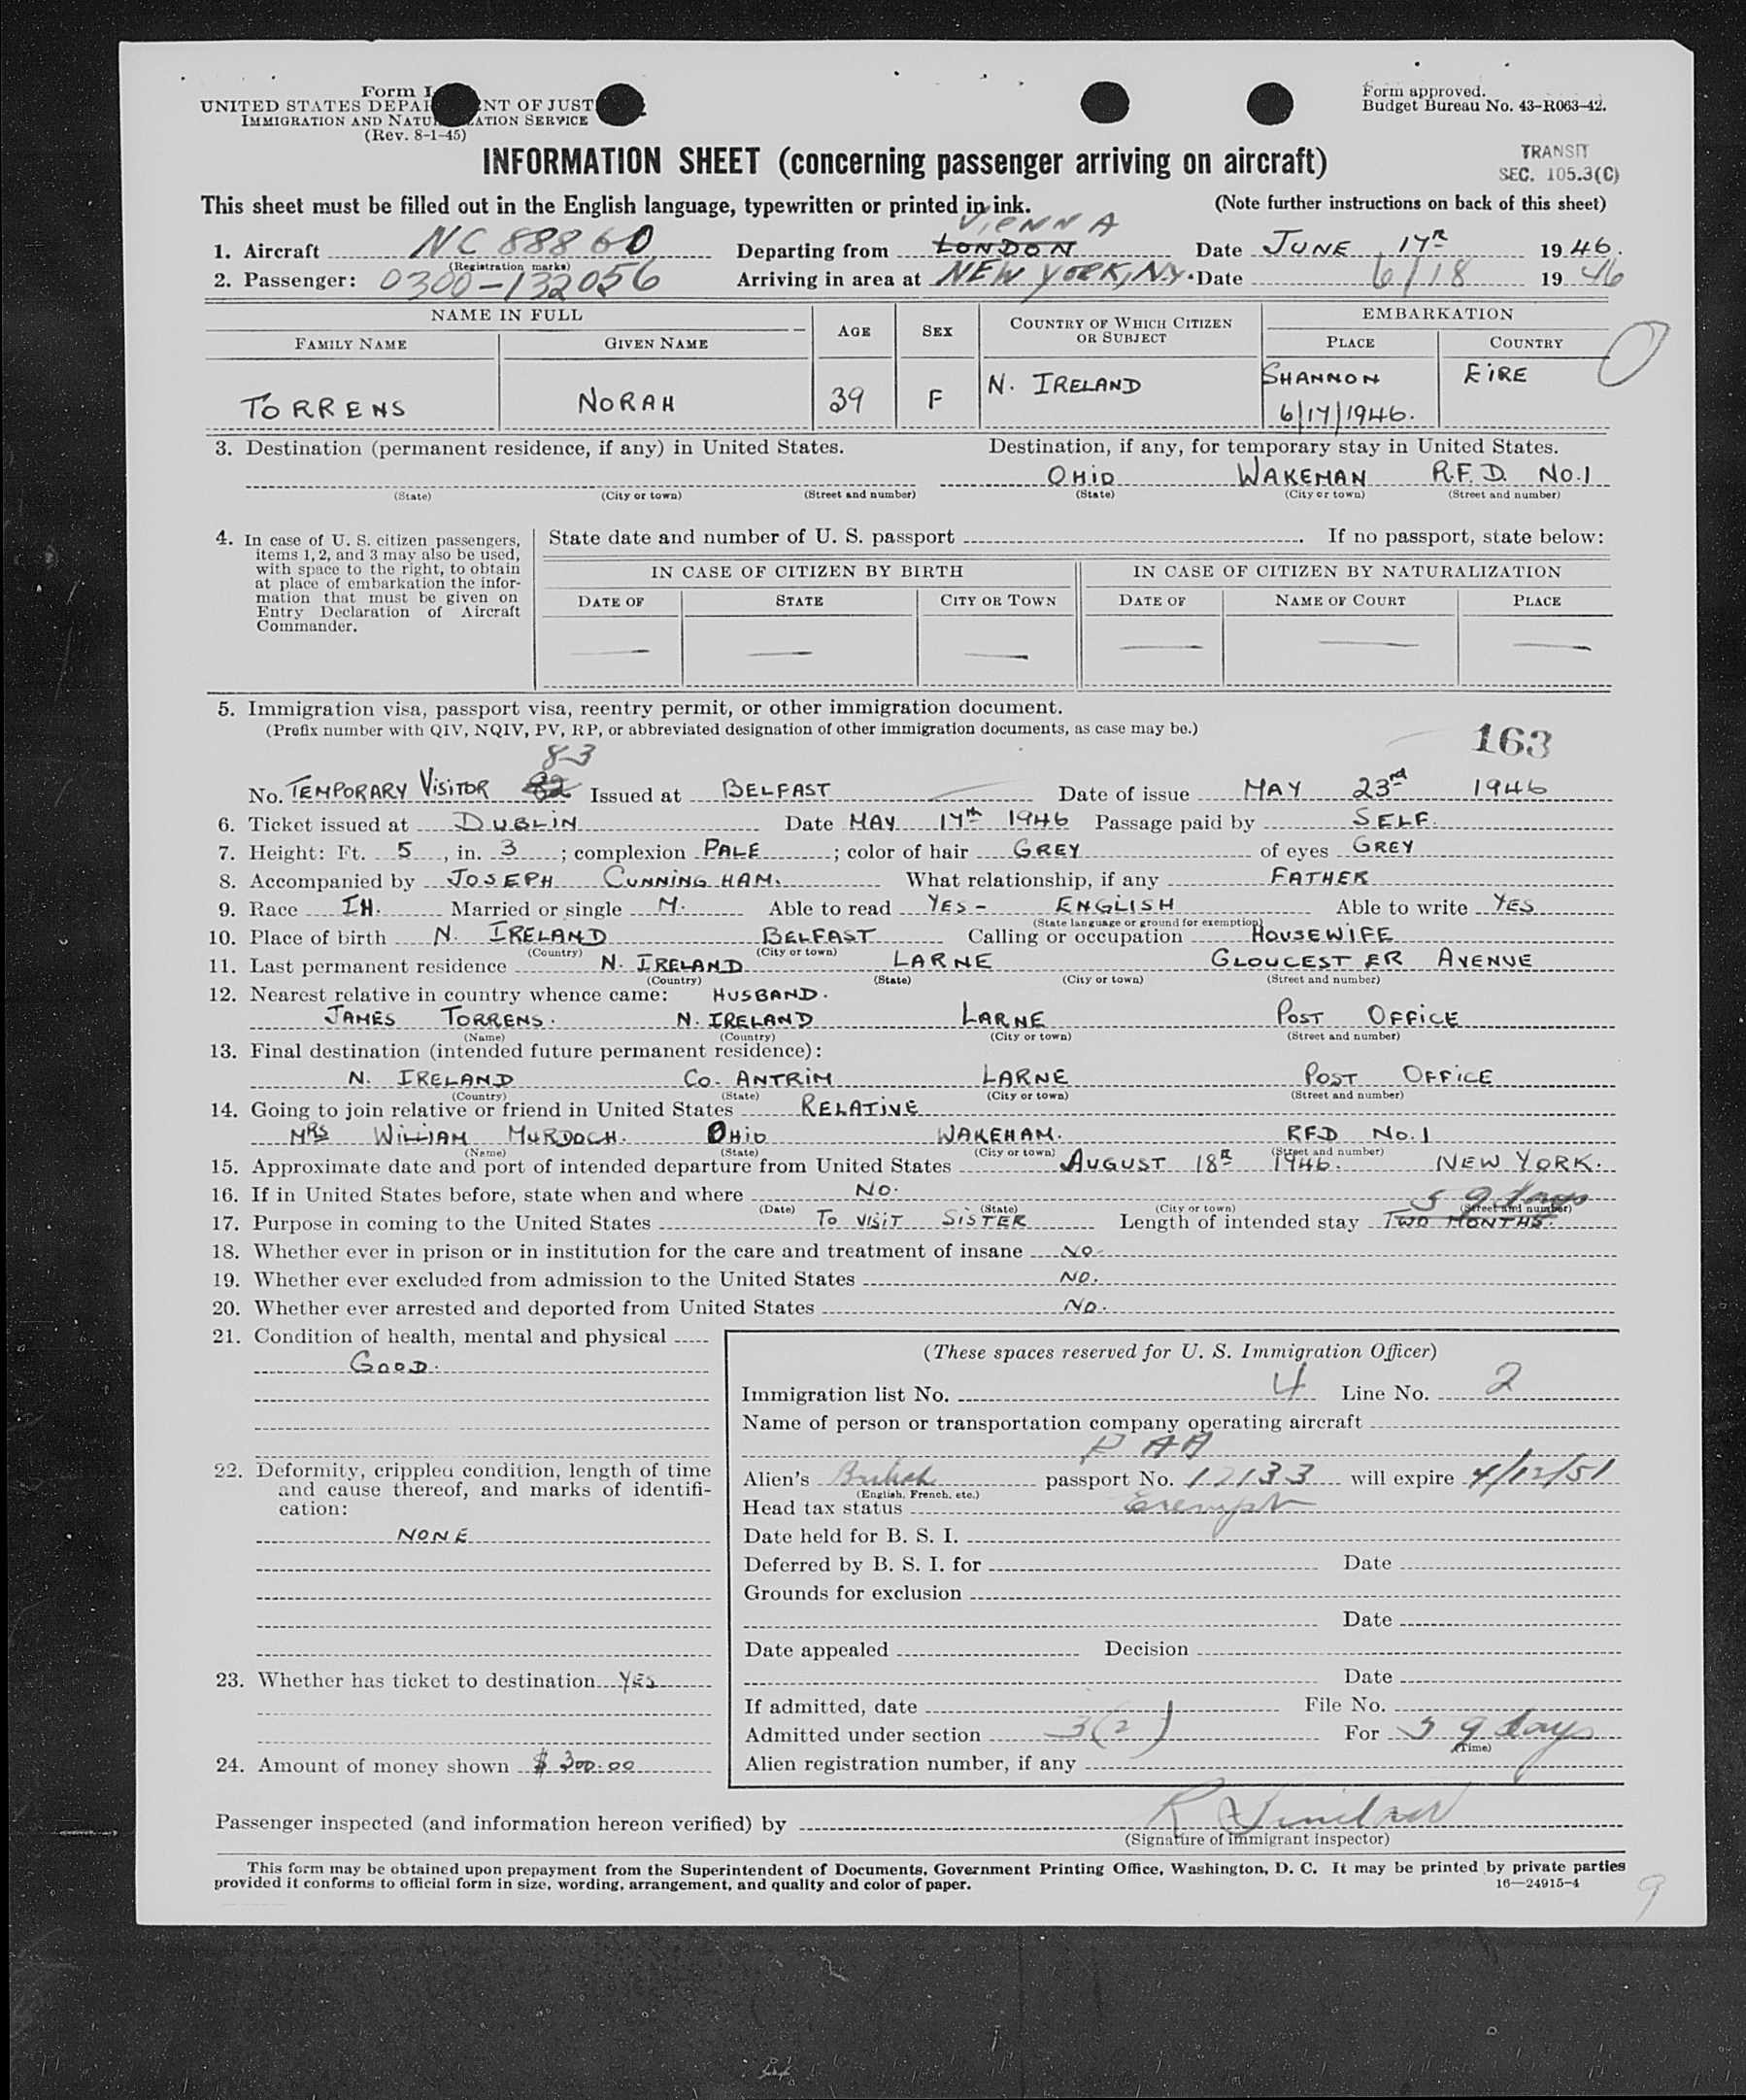 Form I
UNITED STATES DEPAR NT OF JUST
IMMIGRATION AND NATU ATION SERVICE
(Rev. 8-1-45)
Form approved.
Budget Bureau No. 43-R063-42.
INFORMATION SHEET (concerning passenger arriving on aircraft)
TRANSIT
SEC. 105.3(C)
This sheet must be filled out in the English language, typewritten or printed in ink. (Note further instructions on back of this sheet)
VIENNA
1. Aircraft NC 88860 Departing from LONDON Date JUNE 17th 1946.
(Registration marks)
2. Passenger: 0300-132056 Arriving in area at NEW YORK, N.Y. Date 6/18 1946
NAME IN FULL AGE SEX COUNTRY OF WHICH CITIZEN OR SUBJECT EMBARKATION
FAMILY NAME GIVEN NAME PLACE COUNTRY
TORRENS NORAH 39 F N. IRELAND SHANNON EIRE
6/17/1946.
3. Destination (permanent residence, if any) in United States. Destination, if any, for temporary stay in United States.
OHIO WAKEMAN R.F.D. No.1
(State) (City or town) (Street and number) (State) (City or town) (Street and number)
4. In case of U. S. citizen passengers, items 1, 2, and 3 may also be used, with space to the right, to obtain at place of embarkation the information that must be given on Entry Declaration of Aircraft Commander.
State date and number of U. S. passport . If no passport, state below:
IN CASE OF CITIZEN BY BIRTH IN CASE OF CITIZEN BY NATURALIZATION
DATE OF STATE CITY OR TOWN DATE OF NAME OF COURT PLACE
5. Immigration visa, passport visa, reentry permit, or other immigration document.
(Prefix number with QIV, NQIV, PV, RP, or abbreviated designation of other immigration documents, as case may be.)
163
83
No. TEMPORARY VISITOR 82 Issued at BELFAST Date of issue MAY 23rd 1946
6. Ticket issued at DUBLIN Date MAY 17th 1946 Passage paid by SELF.
7. Height: Ft. 5, in. 3; complexion PALE; color of hair GREY of eyes GREY
8. Accompanied by JOSEPH CUNNINGHAM. What relationship, if any FATHER
9. Race IH. Married or single M. Able to read YES - ENGLISH Able to write YES
(State language or ground for exemption)
10. Place of birth N. IRELAND BELFAST Calling or occupation HOUSEWIFE
(Country) (City or town)
11. Last permanent residence N. IRELAND LARNE GLOUCESTER AVENUE
(Country) (State) (City or town) (Street and number)
12. Nearest relative in country whence came: HUSBAND.
JAMES TORRENS. N. IRELAND LARNE POST OFFICE
(Name) (Country) (City or town) (Street and number)
13. Final destination (intended future permanent residence):
N. IRELAND CO. ANTRIM LARNE POST OFFICE
(Country) (State) (City or town) (Street and number)
14. Going to join relative or friend in United States RELATIVE
MRS WILLIAM MURDOCH. OHIO WAKEHAM. RFD No.1
(Name) (State) (City or town) (Street and number)
15. Approximate date and port of intended departure from United States AUGUST 18th 1946. NEW YORK.
16. If in United States before, state when and where No.
(Date) (State) (City or town) (Street and number)
59 days
17. Purpose in coming to the United States TO VISIT SISTER Length of intended stay TWO MONTHS.
18. Whether ever in prison or in institution for the care and treatment of insane No
19. Whether ever excluded from admission to the United States No.
20. Whether ever arrested and deported from United States No.
21. Condition of health, mental and physical
GOOD.
(These spaces reserved for U. S. Immigration Officer)
Immigration list No. 4 Line No. 2
Name of person or transportation company operating aircraft
P A A
22. Deformity, crippled condition, length of time and cause thereof, and marks of identification:
NONE
Alien's British passport No. 12133 will expire 4/12/51
(English, French, etc.)
Head tax status Exempt
Date held for B. S. I.
Deferred by B. S. I. for Date
Grounds for exclusion
Date
Date appealed Decision
Date
23. Whether has ticket to destination YES
If admitted, date File No.
Admitted under section 3(2) For 59 days
(Time)
24. Amount of money shown $300.00
Alien registration number, if any
Passenger inspected (and information hereon verified) by
(Signature of immigrant inspector)
This form may be obtained upon prepayment from the Superintendent of Documents, Government Printing Office, Washington, D. C. It may be printed by private parties
provided it conforms to official form in size, wording, arrangement, and quality and color of paper.
16—24915-4
9